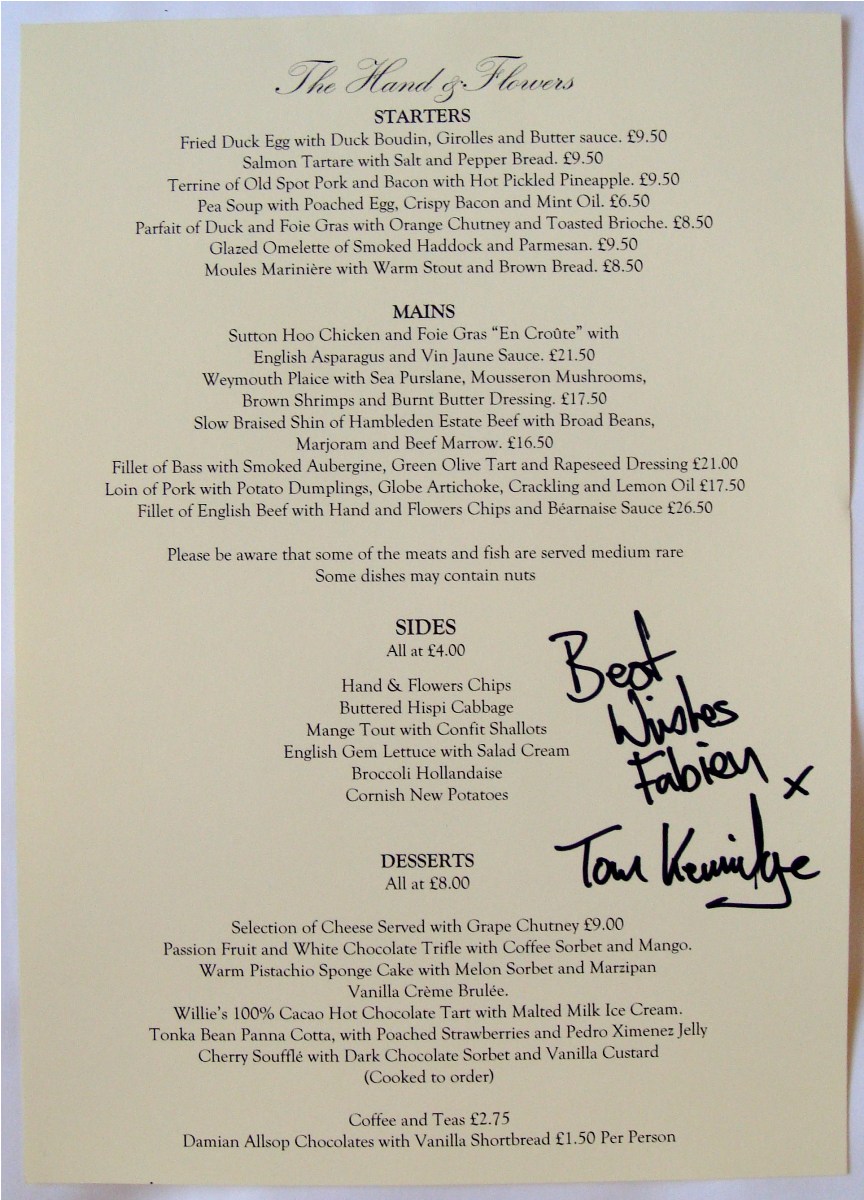 The Hand & Flowers
STARTERS
Fried Duck Egg with Duck Boudin, Girolles and Butter sauce. £9.50
Salmon Tartare with Salt and Pepper Bread. £9.50
Terrine of Old Spot Pork and Bacon with Hot Pickled Pineapple. £9.50
Pea Soup with Poached Egg, Crispy Bacon and Mint Oil. £6.50
Parfait of Duck and Foie Gras with Orange Chutney and Toasted Brioche. £8.50
Glazed Omelette of Smoked Haddock and Parmesan. £9.50
Moules Marinière with Warm Stout and Brown Bread. £8.50
MAINS
Sutton Hoo Chicken and Foie Gras “En Croûte” with
English Asparagus and Vin Jaune Sauce. £21.50
Weymouth Plaice with Sea Purslane, Mousseron Mushrooms,
Brown Shrimps and Burnt Butter Dressing. £17.50
Slow Braised Shin of Hambleden Estate Beef with Broad Beans,
Marjoram and Beef Marrow. £16.50
Fillet of Bass with Smoked Aubergine, Green Olive Tart and Rapeseed Dressing £21.00
Loin of Pork with Potato Dumplings, Globe Artichoke, Crackling and Lemon Oil £17.50
Fillet of English Beef with Hand and Flowers Chips and Béarnaise Sauce £26.50
Please be aware that some of the meats and fish are served medium rare
Some dishes may contain nuts
SIDES
All at £4.00
Hand & Flowers Chips
Buttered Hispi Cabbage
Mange Tout with Confit Shallots
English Gem Lettuce with Salad Cream
Broccoli Hollandaise
Cornish New Potatoes
Best
Wishes
Fabien x
Tom Kerridge
DESSERTS
All at £8.00
Selection of Cheese Served with Grape Chutney £9.00
Passion Fruit and White Chocolate Trifle with Coffee Sorbet and Mango.
Warm Pistachio Sponge Cake with Melon Sorbet and Marzipan
Vanilla Crème Brulée.
Willie's 100% Cacao Hot Chocolate Tart with Malted Milk Ice Cream.
Tonka Bean Panna Cotta, with Poached Strawberries and Pedro Ximenez Jelly
Cherry Soufflé with Dark Chocolate Sorbet and Vanilla Custard
(Cooked to order)
Coffee and Teas £2.75
Damian Allsop Chocolates with Vanilla Shortbread £1.50 Per Person